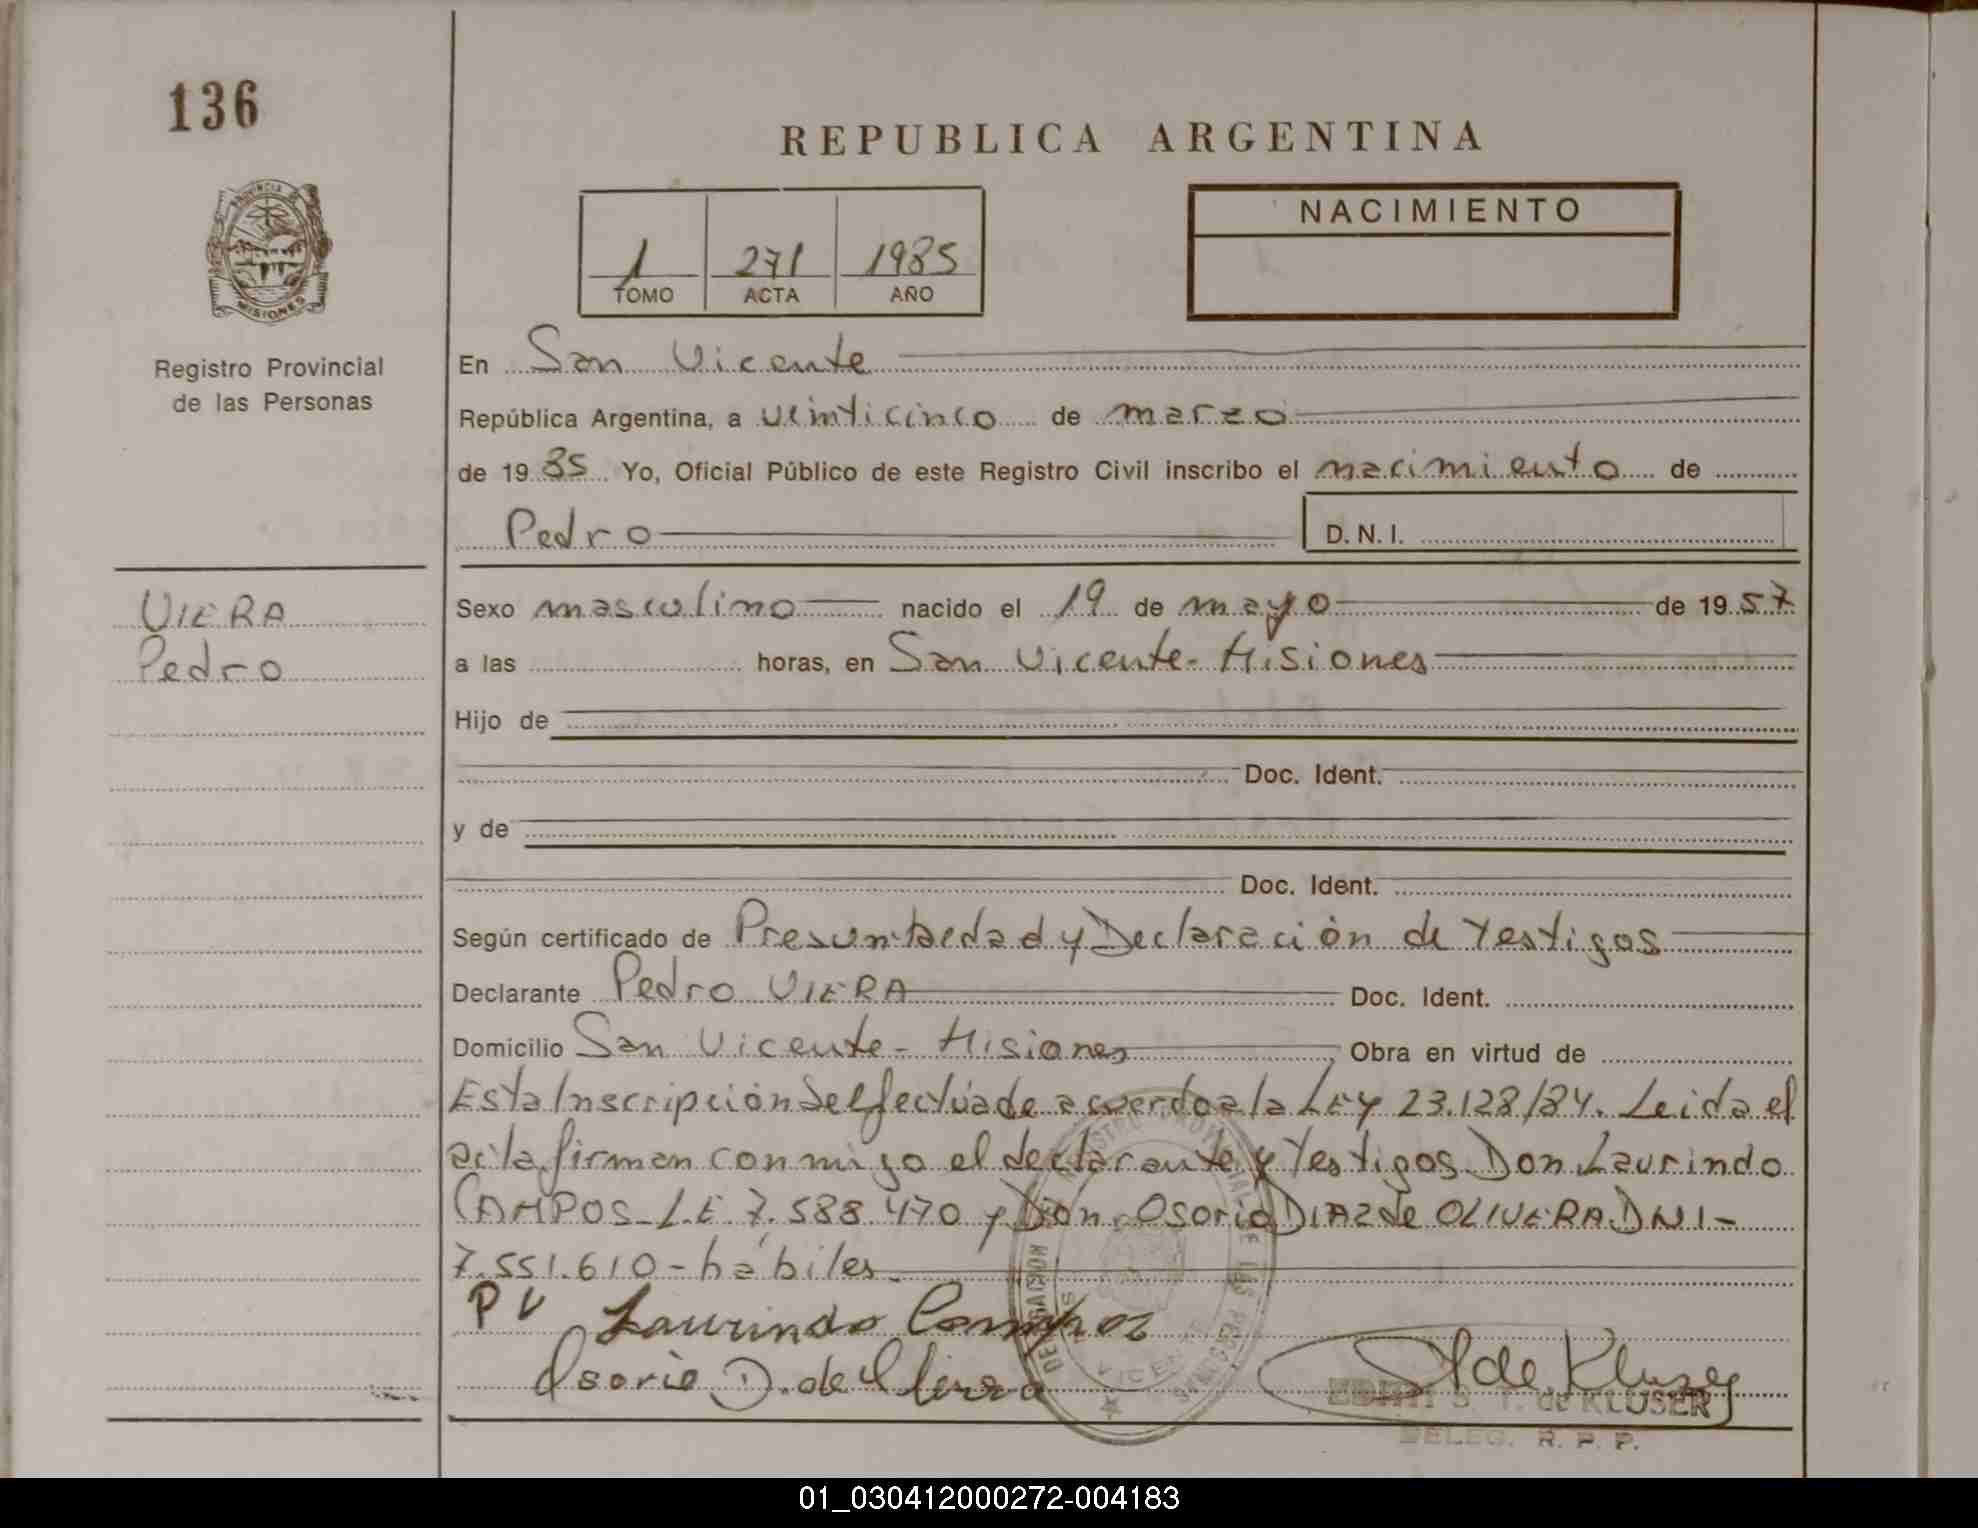 136
REPUBLICA ARGENTINA
PROVINCIA DE
MISIONES
Registro Provincial
de las Personas
1 271 1985
TOMO ACTA AÑO
NACIMIENTO
En San Vicente
República Argentina, a veinticinco de marzo
de 19 85 Yo, Oficial Público de este Registro Civil inscribo el nacimiento de
Pedro D.N.I.
VIERA
Pedro
Sexo masculino nacido el 19 de mayo de 19 57
a las horas, en San Vicente - Misiones
Hijo de
Doc. Ident.
y de
Doc. Ident.
Según certificado de Presunta edad y Declaración de Testigos
Declarante Pedro VIERA Doc. Ident.
Domicilio San Vicente - Misiones Obra en virtud de
Esta Inscripción se efectúa de acuerdo a la Ley 23.128/84. Leida el
acta firman conmigo el declarante y Testigos Don Laurindo
CAMPOS - L.E 7.588.470 y Don Osorio DIAZ de OLIVERA DNI -
7.551.610 - hábiles.
P V Laurindo Campos
Osorio D. de Olivera
S T de Kluser
EDITH S. T. de KLUSER
DELEG. R. P. P.
01_030412000272-004183